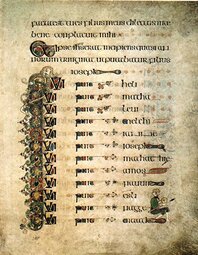 facta est tu es filius meus dilectus in te
bene conplacuit mihi
ipse erat incipiens quasi an
norum triginta ut putabatur filius
ioseph
Qui fuit heli
Qui fuit mathat
Qui fuit leui
Qui fuit melchi
Qui fuit
Qui fuit ioseph
Qui fuit mathathie
Qui fuit amos
Qui fuit nauum
Qui fuit esli
Qui fuit nagge